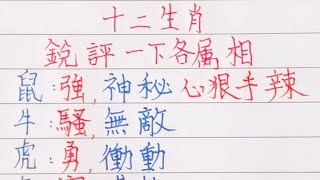 十二生肖
銳評一下各属相
鼠:強,神秘心狠手辣
牛:騷,無敵
虎:勇,働動